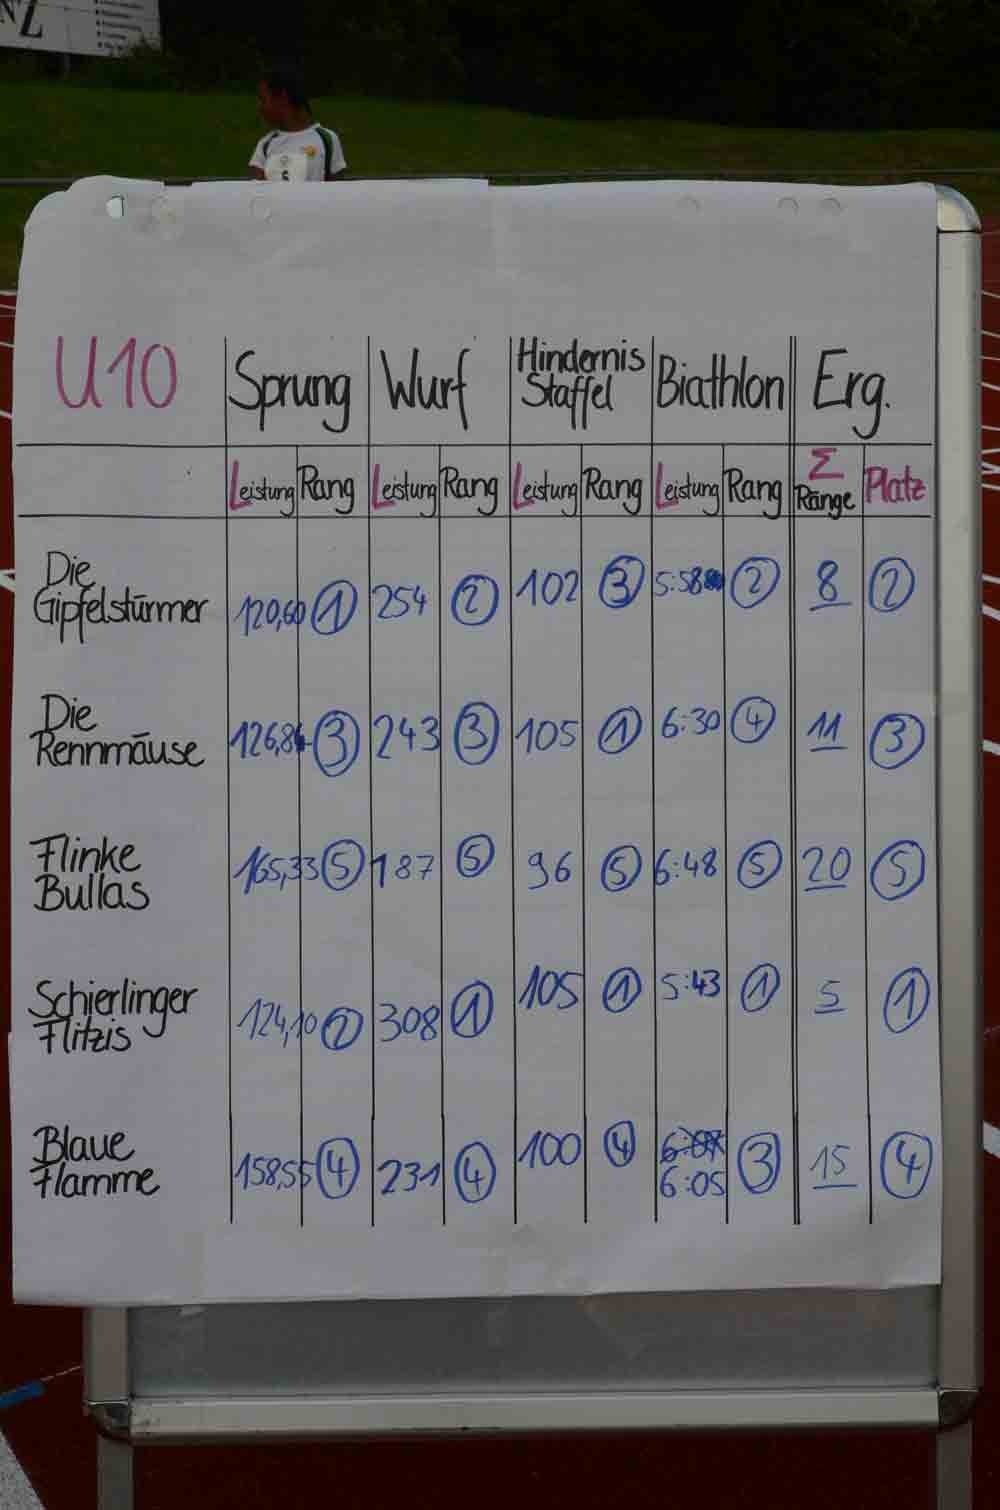 U10 Sprung Wurf Hindernis Staffel Biathlon Erg.
Leistung Rang Leistung Rang Leistung Rang Leistung Rang Σ Ränge Platz
Die Gipfelstürmer 120,60 1 254 2 102 3 5:58 2 8 2
Die Rennmäuse 126,84 3 243 3 105 1 6:30 4 11 3
Flinke Bullas 165,33 5 187 5 96 5 6:48 5 20 5
Schierlinger Flitzis 124,10 2 308 1 105 1 5:43 1 5 1
Blaue Flamme 158,55 4 231 4 100 4 6:07 6:05 3 15 4